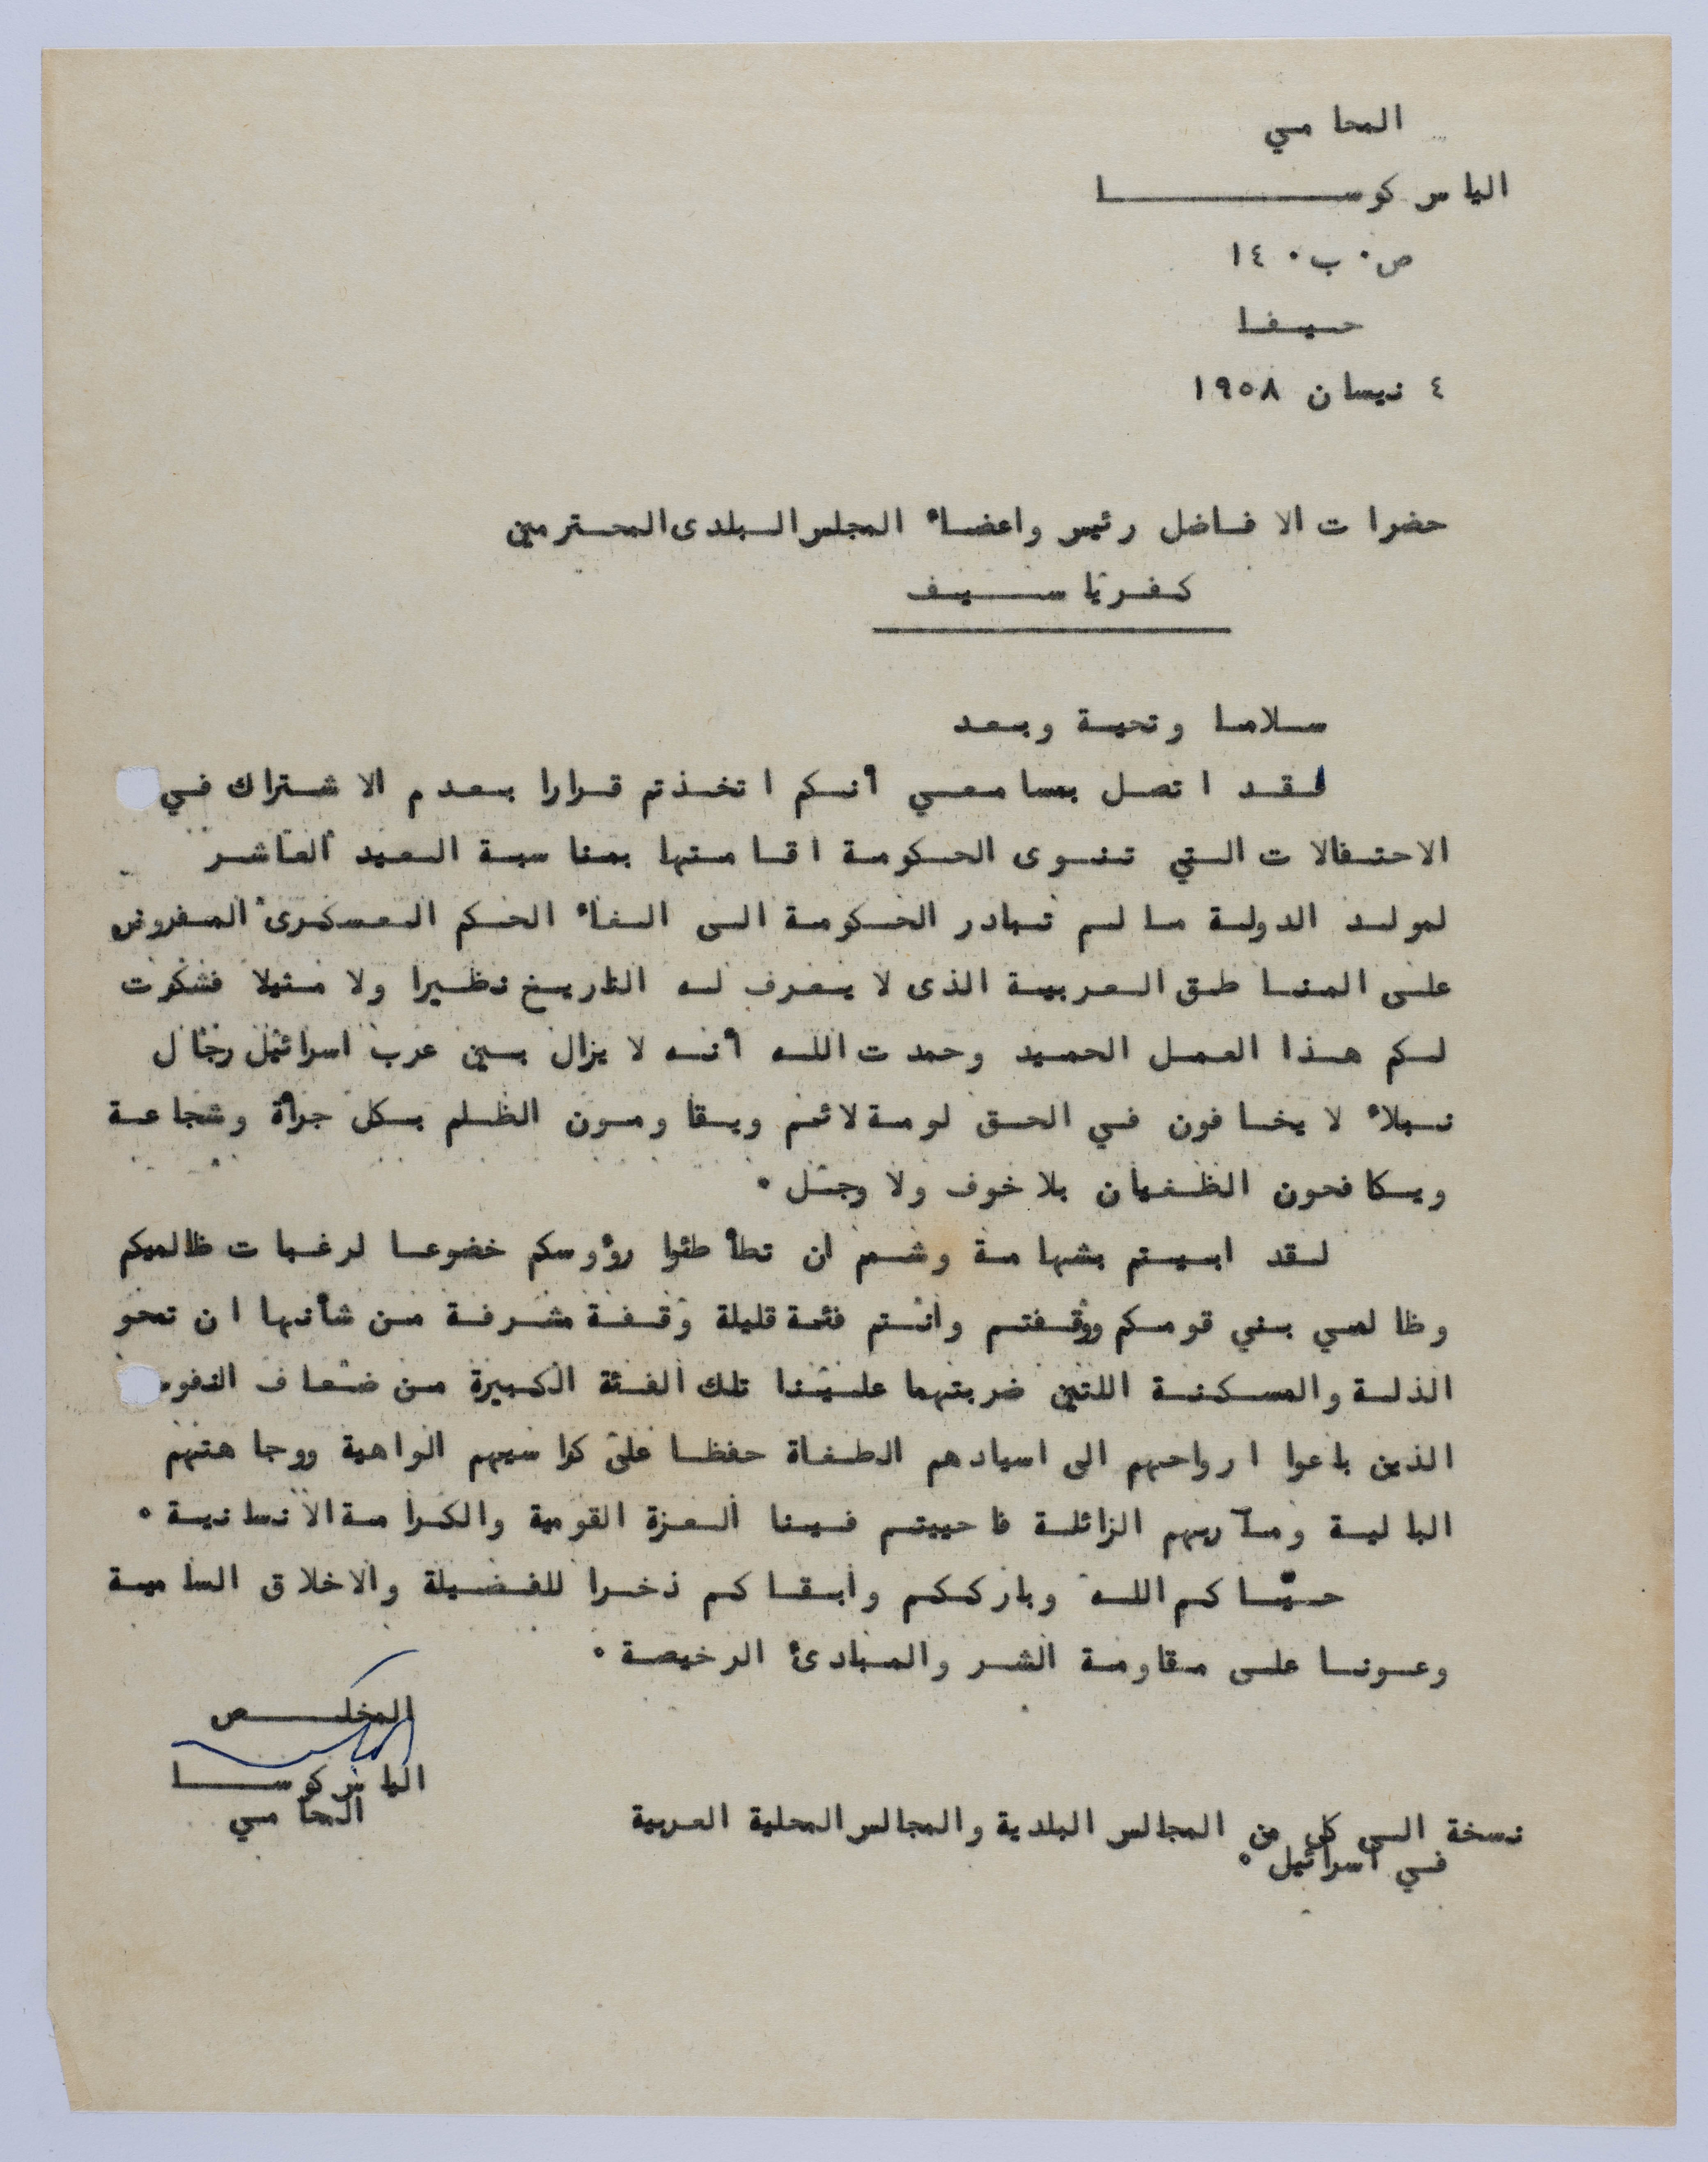 المحامي
الياس كوسا
ص٠ ب٠ ١٤
حيفا
٤ نيسان ١٩٥٨
حضرات الافاضل رئيس واعضاء المجلس البلدى المحترمين
كفرياسيف
سلاما وتحية وبعد
لقد اتصل بمسامعي أنكم اتخذتم قرارا بعدم الاشتراك في
الاحتفالات التي تنوى الحكومة اقامتها بمناسبة العيد العاشر
لمولد الدولة ما لم تبادر الحكومة الى الغاء الحكم العسكرى المفروض
على المناطق العربية الذى لا يعرف له التاريخ نظيرا ولا مثيلا فشكرت
لكم هذا العمل الحميد وحمدت الله أنه لا يزال بين عرب اسرائيل رجال
نبلاء لا يخافون في الحق لومة لائم ويقاومون الظلم بكل جرأة وشجاعة
ويكافحون الظغيان بلا خوف ولا وجل٠
لقد ابيتم بشهامة وشمم ان تطأطئوا رؤوسكم خضوعا لرغبات ظالميكم
وظالمي بني قومكم ووقفتم وانتم فئمة قليلة وقفة مشرفة من شأنها ان تمحو
الذلة والمسكنة اللتين ضربتهما علينا تلك الفئة الكبيرة من ضعاف النفوس
الذين باعوا ارواحهم الى اسيادهم الطغاة حفظا على كراسيهم الواهية ووجاهتهم
البالية ومآربهم الزائلة فاحييتم فينا العزة القومية والكرامة الانسانية٠
حيّاكم الله وبارككم وابقاكم ذخرا للفضيلة والاخلاق السامية
وعونا على مقاومة الشر والمبادئ الرخيصة٠
المخلص
الياس كوسا
المحامي
نسخة الى كل من المجالس البلدية والمجالس المحلية العربية
في اسرائيل٠